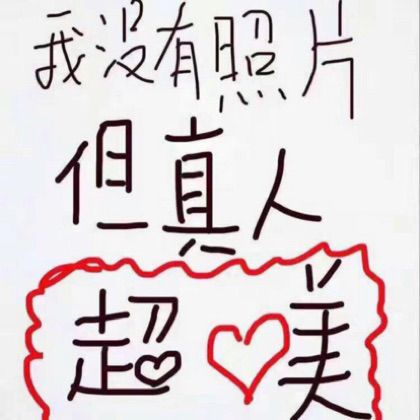 我没有照片
但真人
超美